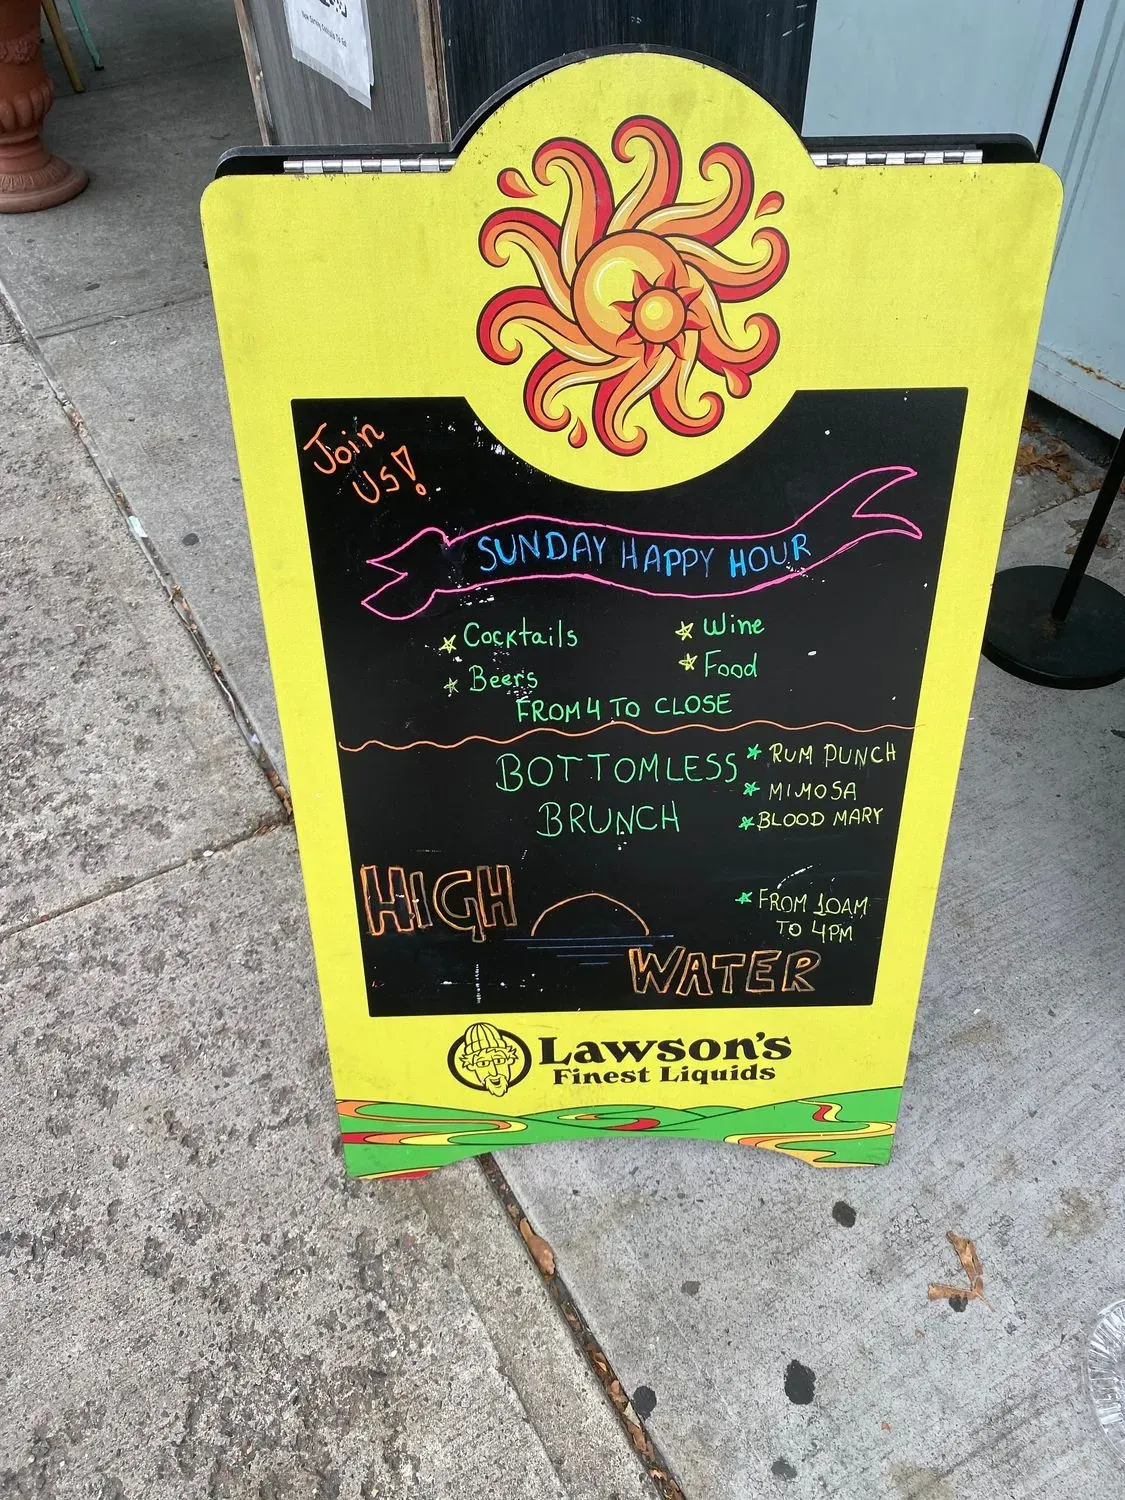 Now Serving Cannolis To Go!
Join
Us!
SUNDAY HAPPY HOUR
Cocktails
Wine
Beers
Food
FROM 4 TO CLOSE
BOTTOMLESS
BRUNCH
RUM PUNCH
MIMOSA
BLOOD MARY
FROM 10AM
TO 4PM
HIGH
WATER
LAWSON'S
FINEST LIQUIDS